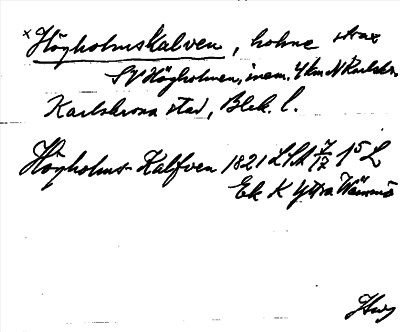 x Högholmskalven, holme strax
SV Högholmen, inem. 4 km N Karlskr.
Karlskrona stad, Blek. l.
Högholms-Kalfven 1821 LSA 7/17 15 L
Ek K Yttra Wämmö